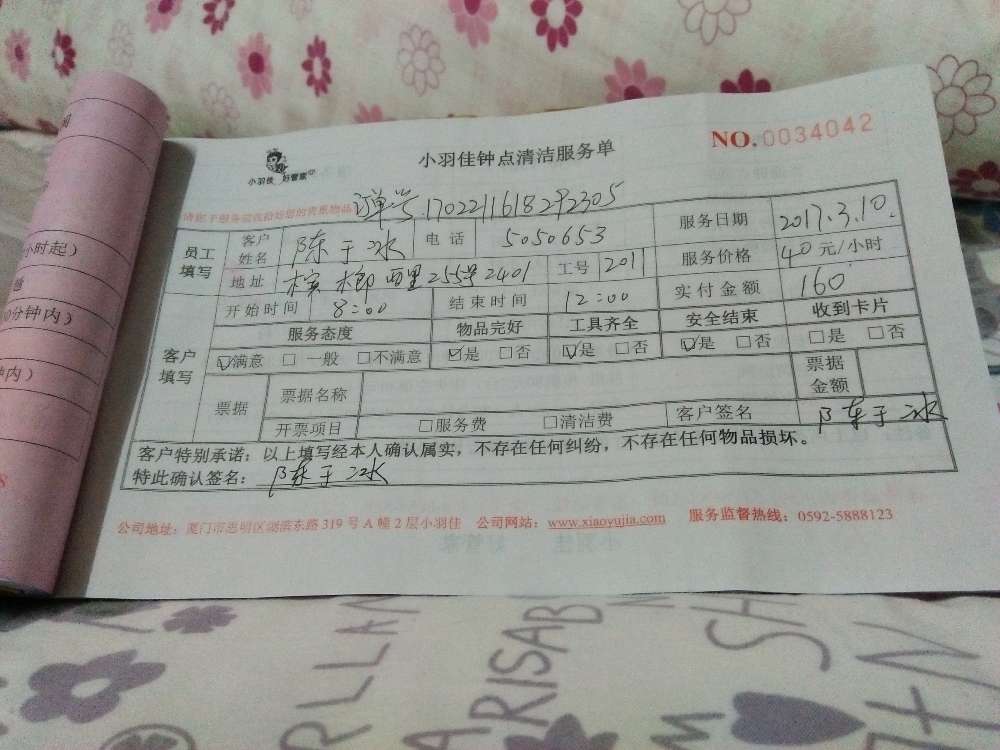 小羽佳 好管家
小羽佳钟点清洁服务单
NO.0034042
订单号:1702211618292305
员工填写 客户姓名 陈于冰 电话 5050653 服务日期 2017.3.10.
地址 槟榔西里255号2401 工号 2011 服务价格 40元/小时
开始时间 8:00 结束时间 12:00 实付金额 160
客户填写 服务态度 物品完好 工具齐全 安全结束 收到卡片
☑满意 □一般 □不满意 ☑是 □否 ☑是 □否 ☑是 □否 □是 □否
票据 票据名称 票据金额
开票项目 □服务费 □清洁费 客户签名 陈于冰
客户特别承诺：以上填写经本人确认属实，不存在任何纠纷，不存在任何物品损坏。
特此确认签名： 陈于冰
公司地址：厦门市思明区湖滨东路319号A幢2层小羽佳 公司网站：www.xiaoyujia.com 服务监督热线：0592-5888123
小时起）
分钟内）
钟内）
ARISAB
SH